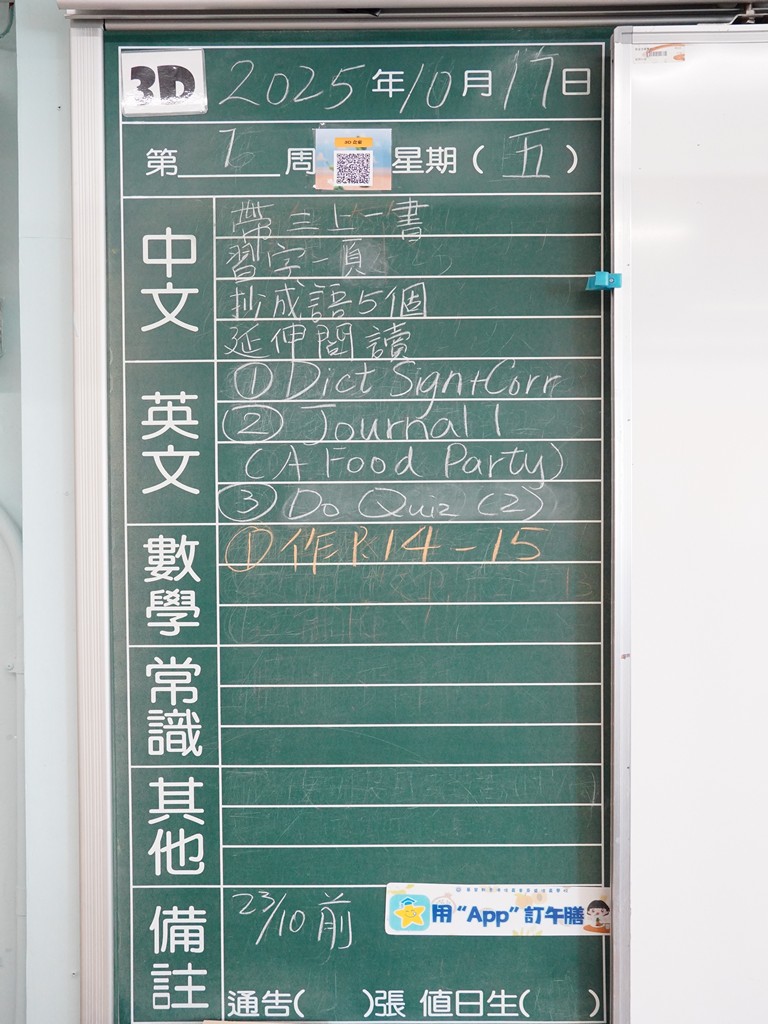 3D 2025年10月17日
第 7 周 星期(五)
中文
帶三上一書
習字一頁
抄成語5個
延伸閱讀
英文
① Dict Sign+Corr
② Journal 1
(A Food Party)
③ Do Quiz (2)
數學
① 作 P.14-15
常識
其他
備註
23/10 前
用“App”訂午膳
通告( )張 值日生( )